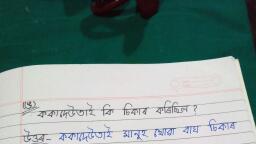 (ঙ) ককাদেউতাই কি চিকাৰ কৰিছিল ?
উত্তৰ- ককাদেউতাই মানুহ খোৱা বাঘ চিকাৰ